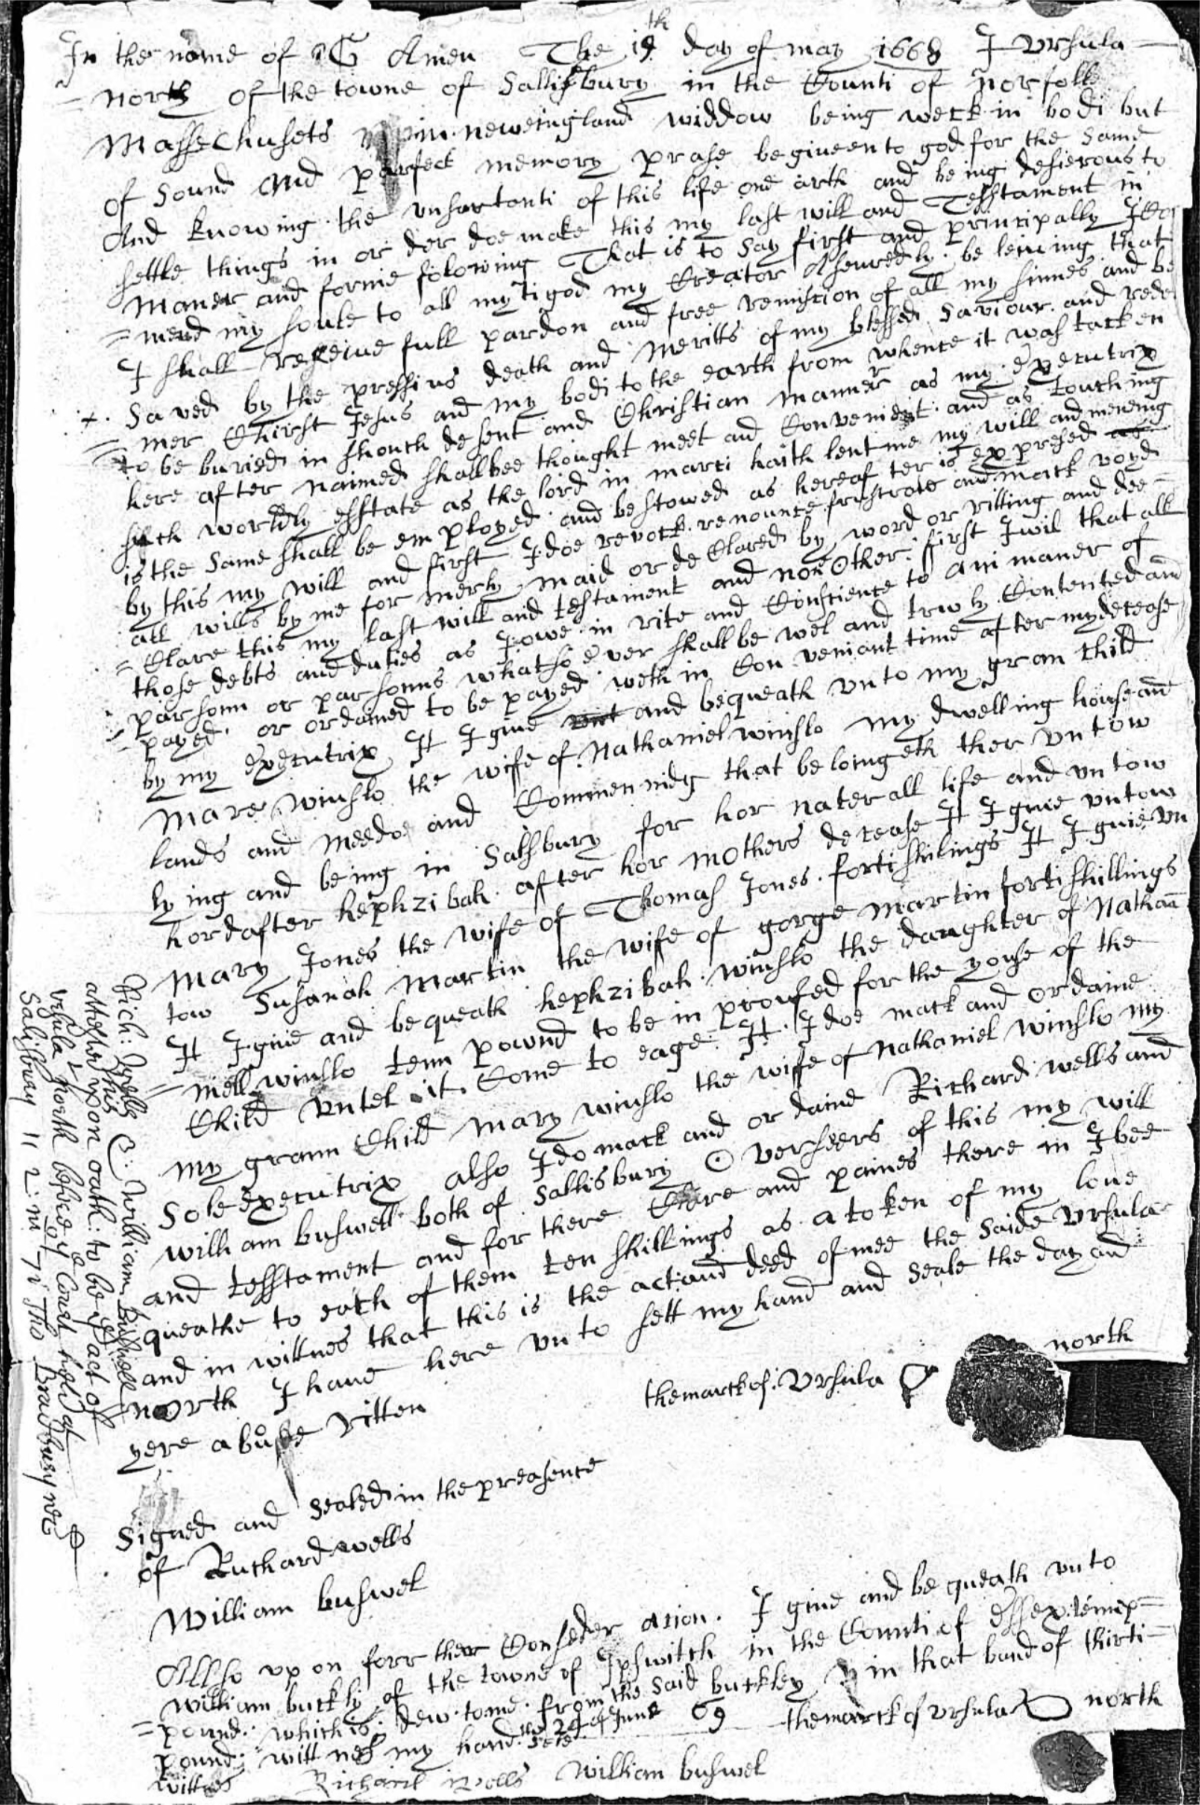 In the name of G Amen The 19th day of may 1668 I Vrsula
= north of the towne of Sallisbury in the Counti of norfolk
Massechusets in neweingland widdow being weck in bodi but
of Sound and parfeck memory prase be giueen to god for the same
And knowing the vnsartanti of this life one arth and being desierous to
settle things in or der doe make this my last will and Testtament in
maner and forme folowing That is to say first and principally I Co
= mend my soule to all myti god my Creator Aseuredly beleiuing that
I shall reseiue full pardon and free remission of all my sinnes and be
+ Saved by the pressius death and meritts of my blessed Saviour and rede
= mer Christ Jesus and my bodi to the earth from whence it was tacken
to be buried in shouch desent and Christian manner as my executrix
here after naimed shall bee thought meet and Convenient and as touching
such worldly esstate as the lord in marci haith lent me my will and mening
is the same shall be em ployed and bestowed as hereaf ter is expresed
by this my will and first I doe revock renounce frustrate and mack voyd
all wills by me for merly maid or de Clared by word or ritting and dee =
= Clare this my last will and testament and non other first I wil that all
those debts and duties as I owe in rite and Conscience to ani maner of
parsonn or parsonns whatso ever shall be wel and trwly Contented and
= payed or ordained to be payed with in Con veniant time after my decease
by my executrix It I giue and bequeath vnto my gran child
mare winslo the wife of Nathaniel winslo my dwelling house and
lands and meedoe and Commen that be loingeth ther vntow
lying and being in Salsbury for hor naterall life and vntow
hordafter hephzibah after hor mothers decease It I giue vntow
mary Jones the wife of Thomas Jones forti shilings It I giue vn
tow Susanah martin the wife of gorge martin forti shillings
It I giue and be queath hephzibah winslo the daughter of Nathan
= niell winslo tenn pownd to be in proufed for the youse of the
Child vntel it Come to eage It I doe mack and ordaine
my grann Child mary winslo the wife of nathaniel winslo my
Sole executrix also I do mack and or daine Richard wells and
william buswell both of Sallisbury Overseers of this my will
and testtament and for there Care and paines there in I bee
queathe to each of them ten shillings as a token of my loue
and in wittnes that this is the act and deed of mee the saide Vrsula
north I haue here vnto sett my hand and seale the day and
yere aboue ritten
the marck of Vrsula north
Signed and sealed in the preasence
of Richard wells
William buswel
Allso vp on forr ther Conseder ation I giue and be queath vnto
william buckly of the towne of Ipswitch in the Counti of essex
= pound which is dew to me from the said buckley in that band of thirti
pound wittnes my hand the 24 of June 69 the marck of Vrsula north
wittnes Richard Wells William buswel
Rich: Wells & William Buswell
attested upon oath to be ye act of
vrsula north before ye Court held at
Salisbury 11 2 m 71 Tho Bradbury rec